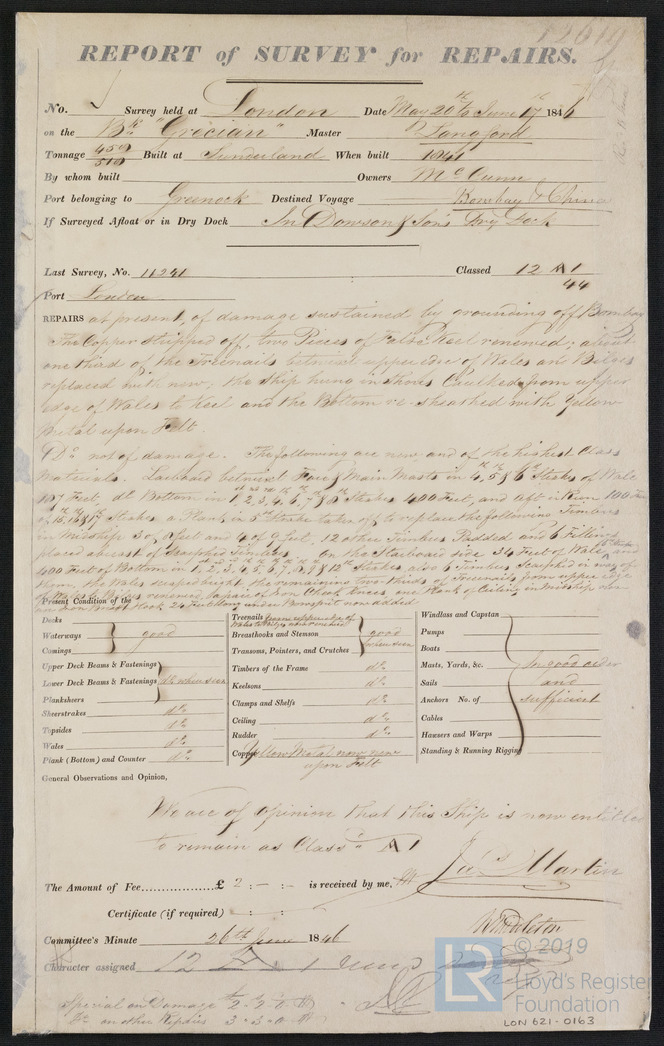 12619
REPORT of SURVEY for REPAIRS.
No. Survey held at London Date May 20th to June 17th 1846
on the Bk "Grecian" Master Langford
Tonnage 459 / 510 Built at Sunderland When built 1841
By whom built Owners McCunn
Port belonging to Greenock Destined Voyage Bombay & China
If Surveyed Afloat or in Dry Dock In Dowson & Son's Dry Dock
Last Survey, No. 11241 Classed 12 A 1
44
Port London
REPAIRS at present, of damage sustained by grounding off Bombay
The Copper stripped off, two Pieces of False Keel renewed; about
one third of the Treenails betwixt upper edge of Wales and Bilges
replaced with new; the Ship hung in Shores Caulked from upper
edge of Wales to Keel and the Bottom re-sheathed with Yellow
Metal upon Felt.
Do not of damage. The following are new and of the highest Class
Materials. Larboard betwixt Fore & Main Masts in 4, 5 & 6th Stakes of Wale
107 Feet, do Bottom in 1, 2, 3, 4, 6, 7, & 8th Strakes 400 Feet, and aft in Run 100 Feet
of 15, 16 & 17 Strakes a Plank in 5th Strake taken off to replace the following Timbers
in Midship 3 of 8 feet and 4 of 9 feet, 12 other Timbers Padded and 6 Fillings
placed abreast of Scarphed Timbers. On the Starboard side 34 Feet of Wale and
400 Feet of Bottom in 1, 2, 3, 4, 5, 6, 7, & 12th Strakes also 6 Timbers Scarphed in way of
them, the Wales scraped bright the remaining two thirds of Treenails from upper edge
of Wales to Bilges renewed, a pair of Iron Cheek Knees, one Plank of Ceiling in Midship
an Iron Breast Hook 24 Feet long under Bowsprit now added
Present Condition of the
Decks
Waterways good
Comings
Upper Deck Beams & Fastenings
Lower Deck Beams & Fastenings do when seen
Planksheers
Sheerstrakes do
Topsides do
Wales do
Plank (Bottom) and Counter do
Treenails from upper edge of Wales to Bilges now renewed
Breasthooks and Stemson good
Transoms, Pointers, and Crutches when seen
Timbers of the Frame do
Keelsons do
Clamps and Shelfs do
Ceiling do
Rudder do
Copper Yellow Metal now new
upon Felt
Windlass and Capstan
Pumps
Boats
Masts, Yards, &c. In good order
Sails and
Anchors No. of sufficient
Cables
Hawsers and Warps
Standing & Running Rigging
General Observations and Opinion,
We are of opinion that this Ship is now entitled
to remain as Classd A 1
The Amount of Fee............... £ 2 : - : - is received by me, Jas Martin
Certificate (if required) - : - : -
Committee's Minute 26th June 1846
Character assigned 12 A 1
Special on Damage £2 - 2 - 0
Do on other Repairs 3 - 3 - 0
© 2019
LR
Lloyd's Register
Foundation
LON 621-0163